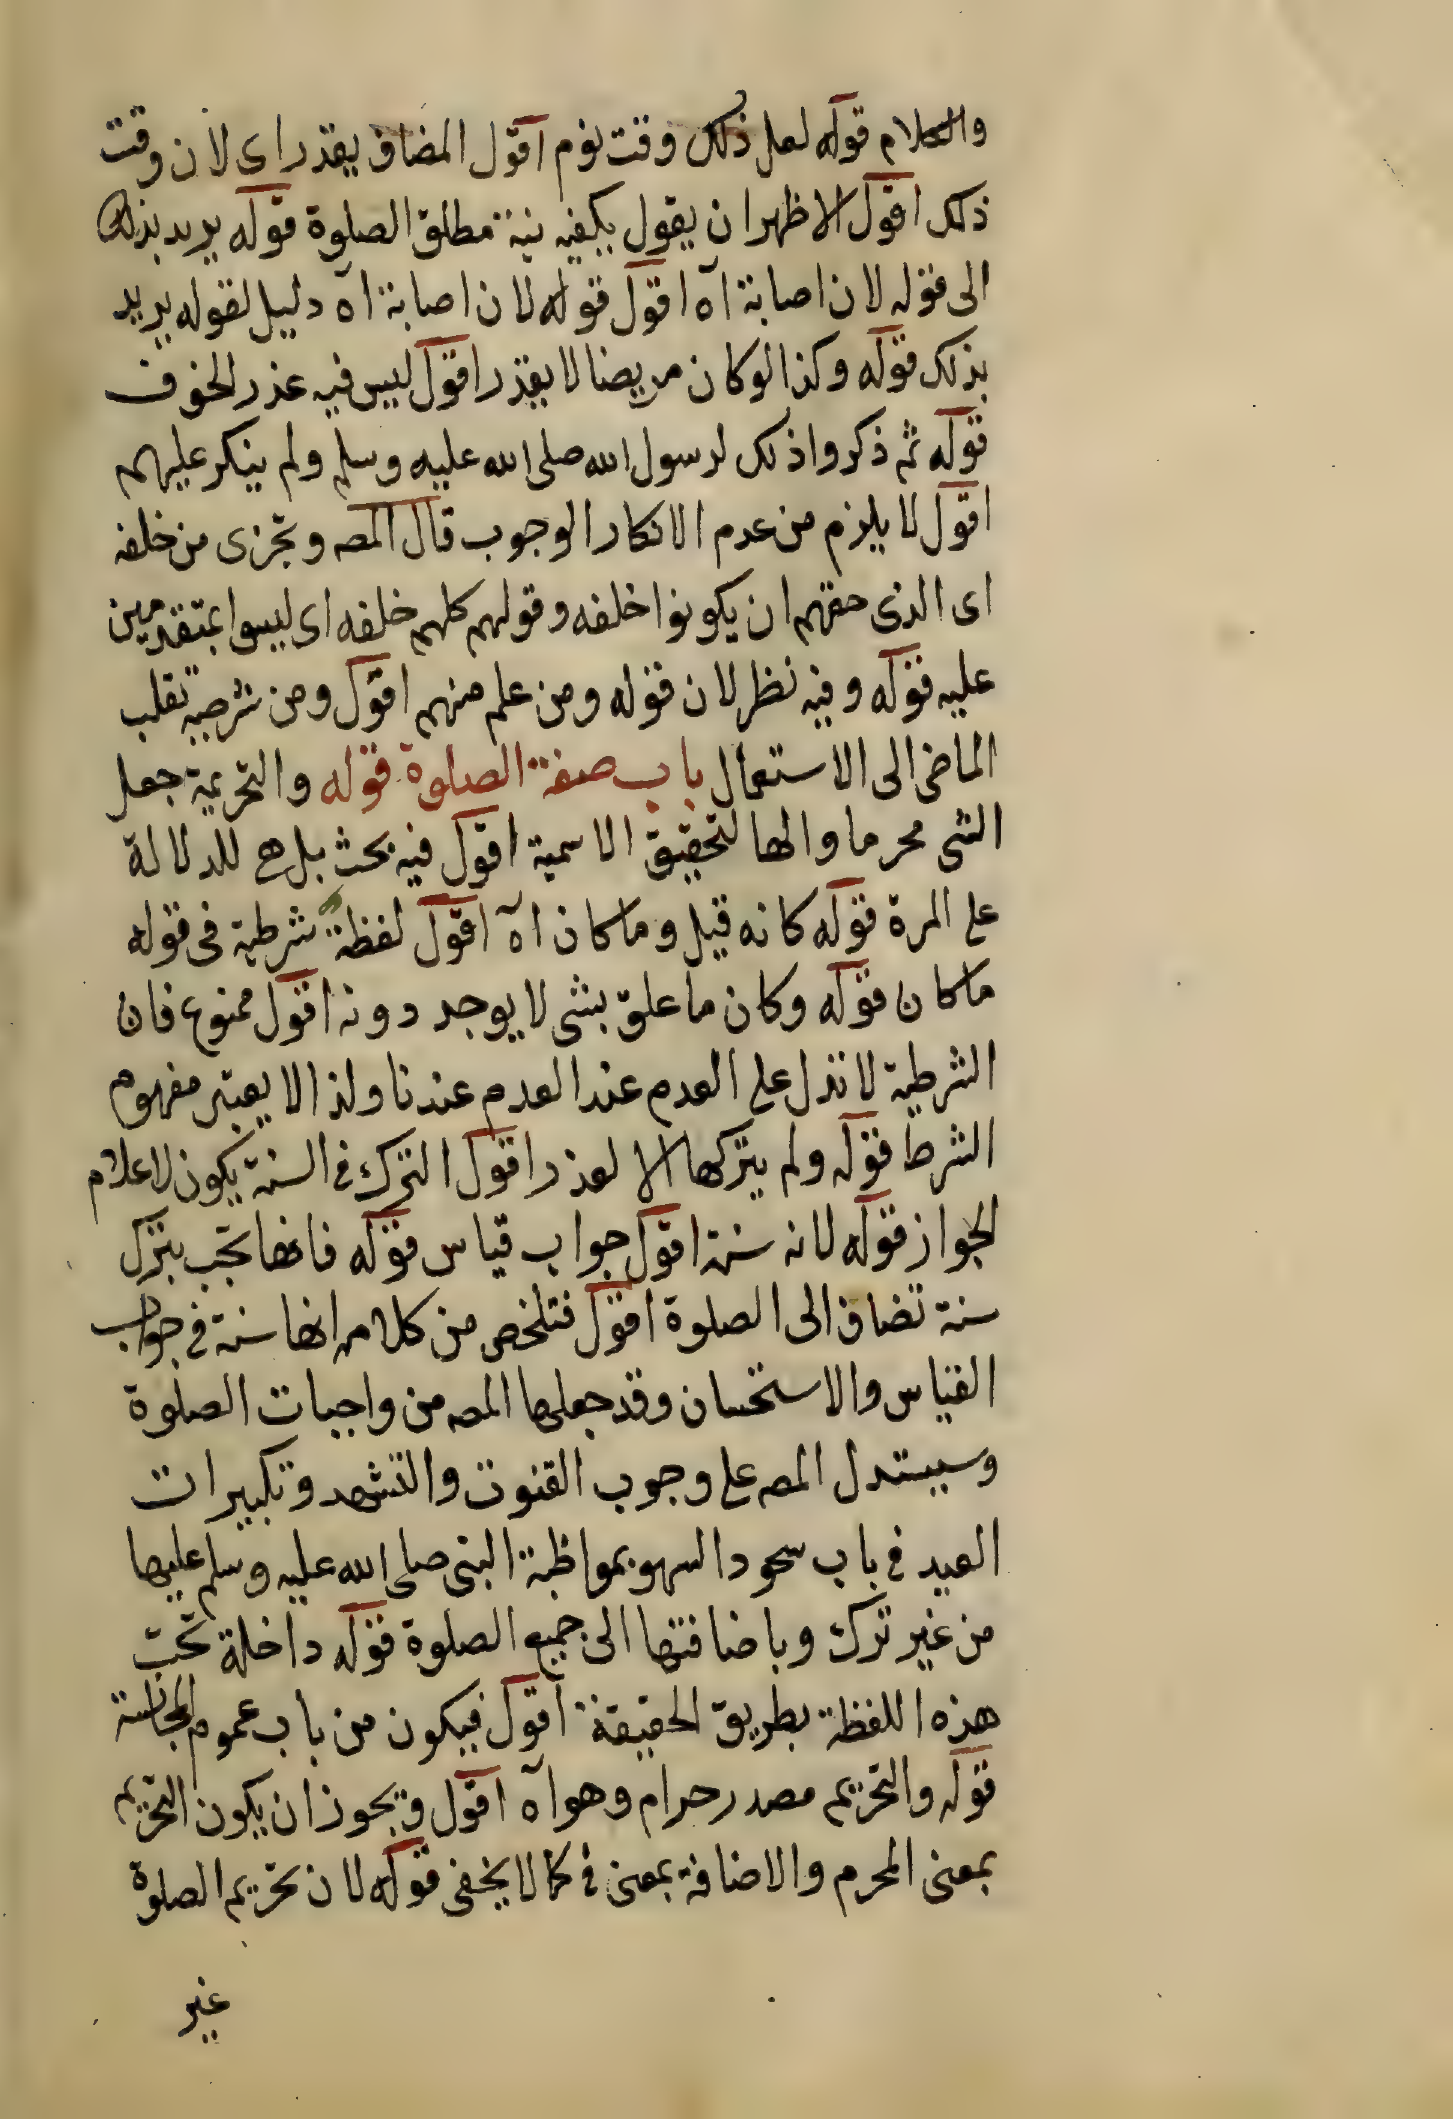 والسلام قوله لعل ذلك وقت نوم اقول المضاف يقدر اى لان وقت
ذلك اقول الاظهر ان يقول يكفيه نية مطلق الصلوة قوله يريد بذلك
الى قوله لان اصابة اه اقول قوله لان اصابة اه دليل لقوله يريد
بذلك قوله وكذا لو كان مريضا لا يقدر اقول ليس فيه عذر الخوف
قوله ثم ذكروا ذلك لرسول الله صلى الله عليه وسلم ولم ينكر عليهم
اقول لا يلزم من عدم الانكار الوجوب قال المصه وتجزى من خلفه
اى الذى حقهم ان يكونوا خلفه وقولهم كلهم خلفه اى ليسوا بمتقدمين
عليه قوله وفيه نظر لان قوله ومن علم منهم اقول ومن شرطية تقلب
الماضى الى الاستقبال باب صفة الصلوة قوله والتحريمة جعل
الشى محرما والها لتحقيق الاسمية اقول فيه بحث بل هى للدلالة
على المرة قوله كانه قيل وما كان اه اقول لفظة شرطية فى قوله
ما كان قوله وكان ما علق بشى لا يوجد دونه اقول ممنوع فان
الشرطية لا تدل على العدم عند العدم عندنا ولذا لا يعتبر مفهوم
الشرط قوله ولم يتركها الا لعذر اقول الترك فى السنة يكون لاعلام
الجواز قوله لانه سنة اقول جواب قياس قوله فانها تجب بترك
سنة تضاف الى الصلوة اقول فتلخص من كلامه انها سنة فى جواب
القياس والاستحسان وقد جعلها المصه من واجبات الصلوة
وسيستدل المصه على وجوب القنوت والتشهد وتكبيرات
العيد فى باب سجود السهو بمواظبة النبى صلى الله عليه وسلم عليها
من غير ترك وباضافتها الى جميع الصلوة قوله داخلة تحت
هذه اللفظة بطريق الحقيقة اقول فيكون من باب عموم المجانسة
قوله والتحريم مصدر حرام وهو اه اقول ويجوز ان يكون التحريم
بمعنى المحرم والاضافة بمعنى فى كما لا يخفى قوله لان تحريم الصلوة
غير